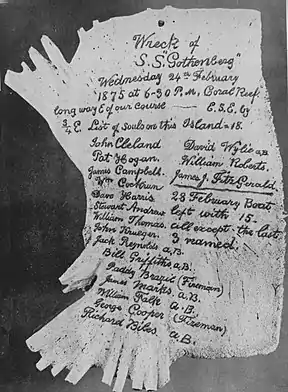 Wreck of
S.S. "Gothenberg"
Wednesday 24th February
1875 at 6-30 P.M, Coral Reef
long way E of our course — E.S.E. by
3/4 E. List of Souls on this Island = 18.
John Cleland David Wylie a.B.
Pat Hogan. William Roberts.
James Campbell. James J. Fitz Gerald.
Wm Cockrun 28 February Boat
Dave Harris left with 15.
Stewart Andrew all except the last
William Thomas. 3 named.
John Krueger.
Jack Reynolds a.B.
Bill Griffiths a.B.
Paddy Brazil (Fireman)
James Marks. a.B.
William Falk a.B.
George Cooper (Fireman)
Richard Biles. a.B.